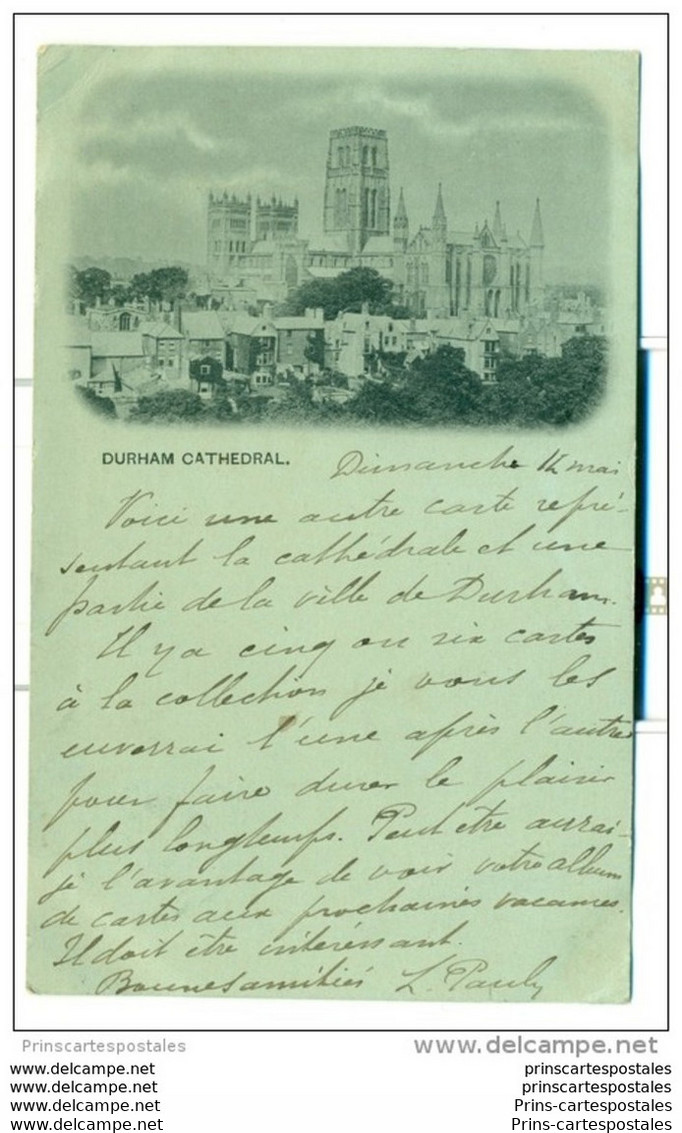 DURHAM CATHEDRAL.
Dimanche 14 mai
Voici une autre carte repré-
sentant la cathédrale et une
partie de la ville de Durham.
Il y a cinq ou six cartes
à la collection je vous les
enverrai l'une après l'autre
pour faire durer le plaisir
plus longtemps. Peut être aurai-
je l'avantage de voir votre album
de cartes aux prochaines vacances.
Il doit être intéressant.
Bonnes amitiés L. Pauly
Prinscartespostales www.delcampe.net
www.delcampe.net prinscartespostales
www.delcampe.net prinscartespostales
www.delcampe.net Prins-cartespostales
www.delcampe.net Prins-cartespostales